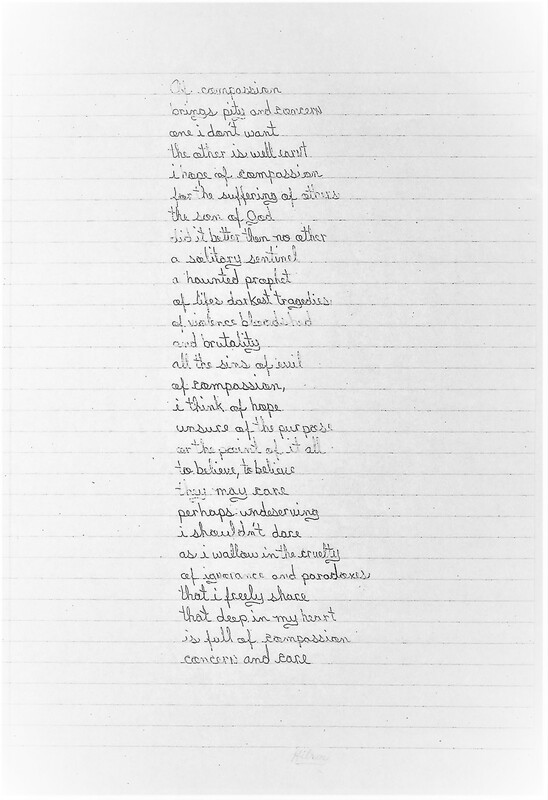 Of compassion
brings pity and concern
one i don't want
the other is well earnt
i hope of compassion
for the suffering of others
the son of God
did it better then no other
a solitary sentinel
a haunted prophet
of lifes darkest tragedies
of violence bloodshed
and brutality
all the sins of evil
of compassion,
i think of hope
unsure of the purpose
or the point of it all
to believe, to believe
they may care
perhaps undeserving
i shouldn't dare
as i wallow in the cruelty
of ignorance and paradoxes
that i freely share
that deep in my heart
is full of compassion
concern and care